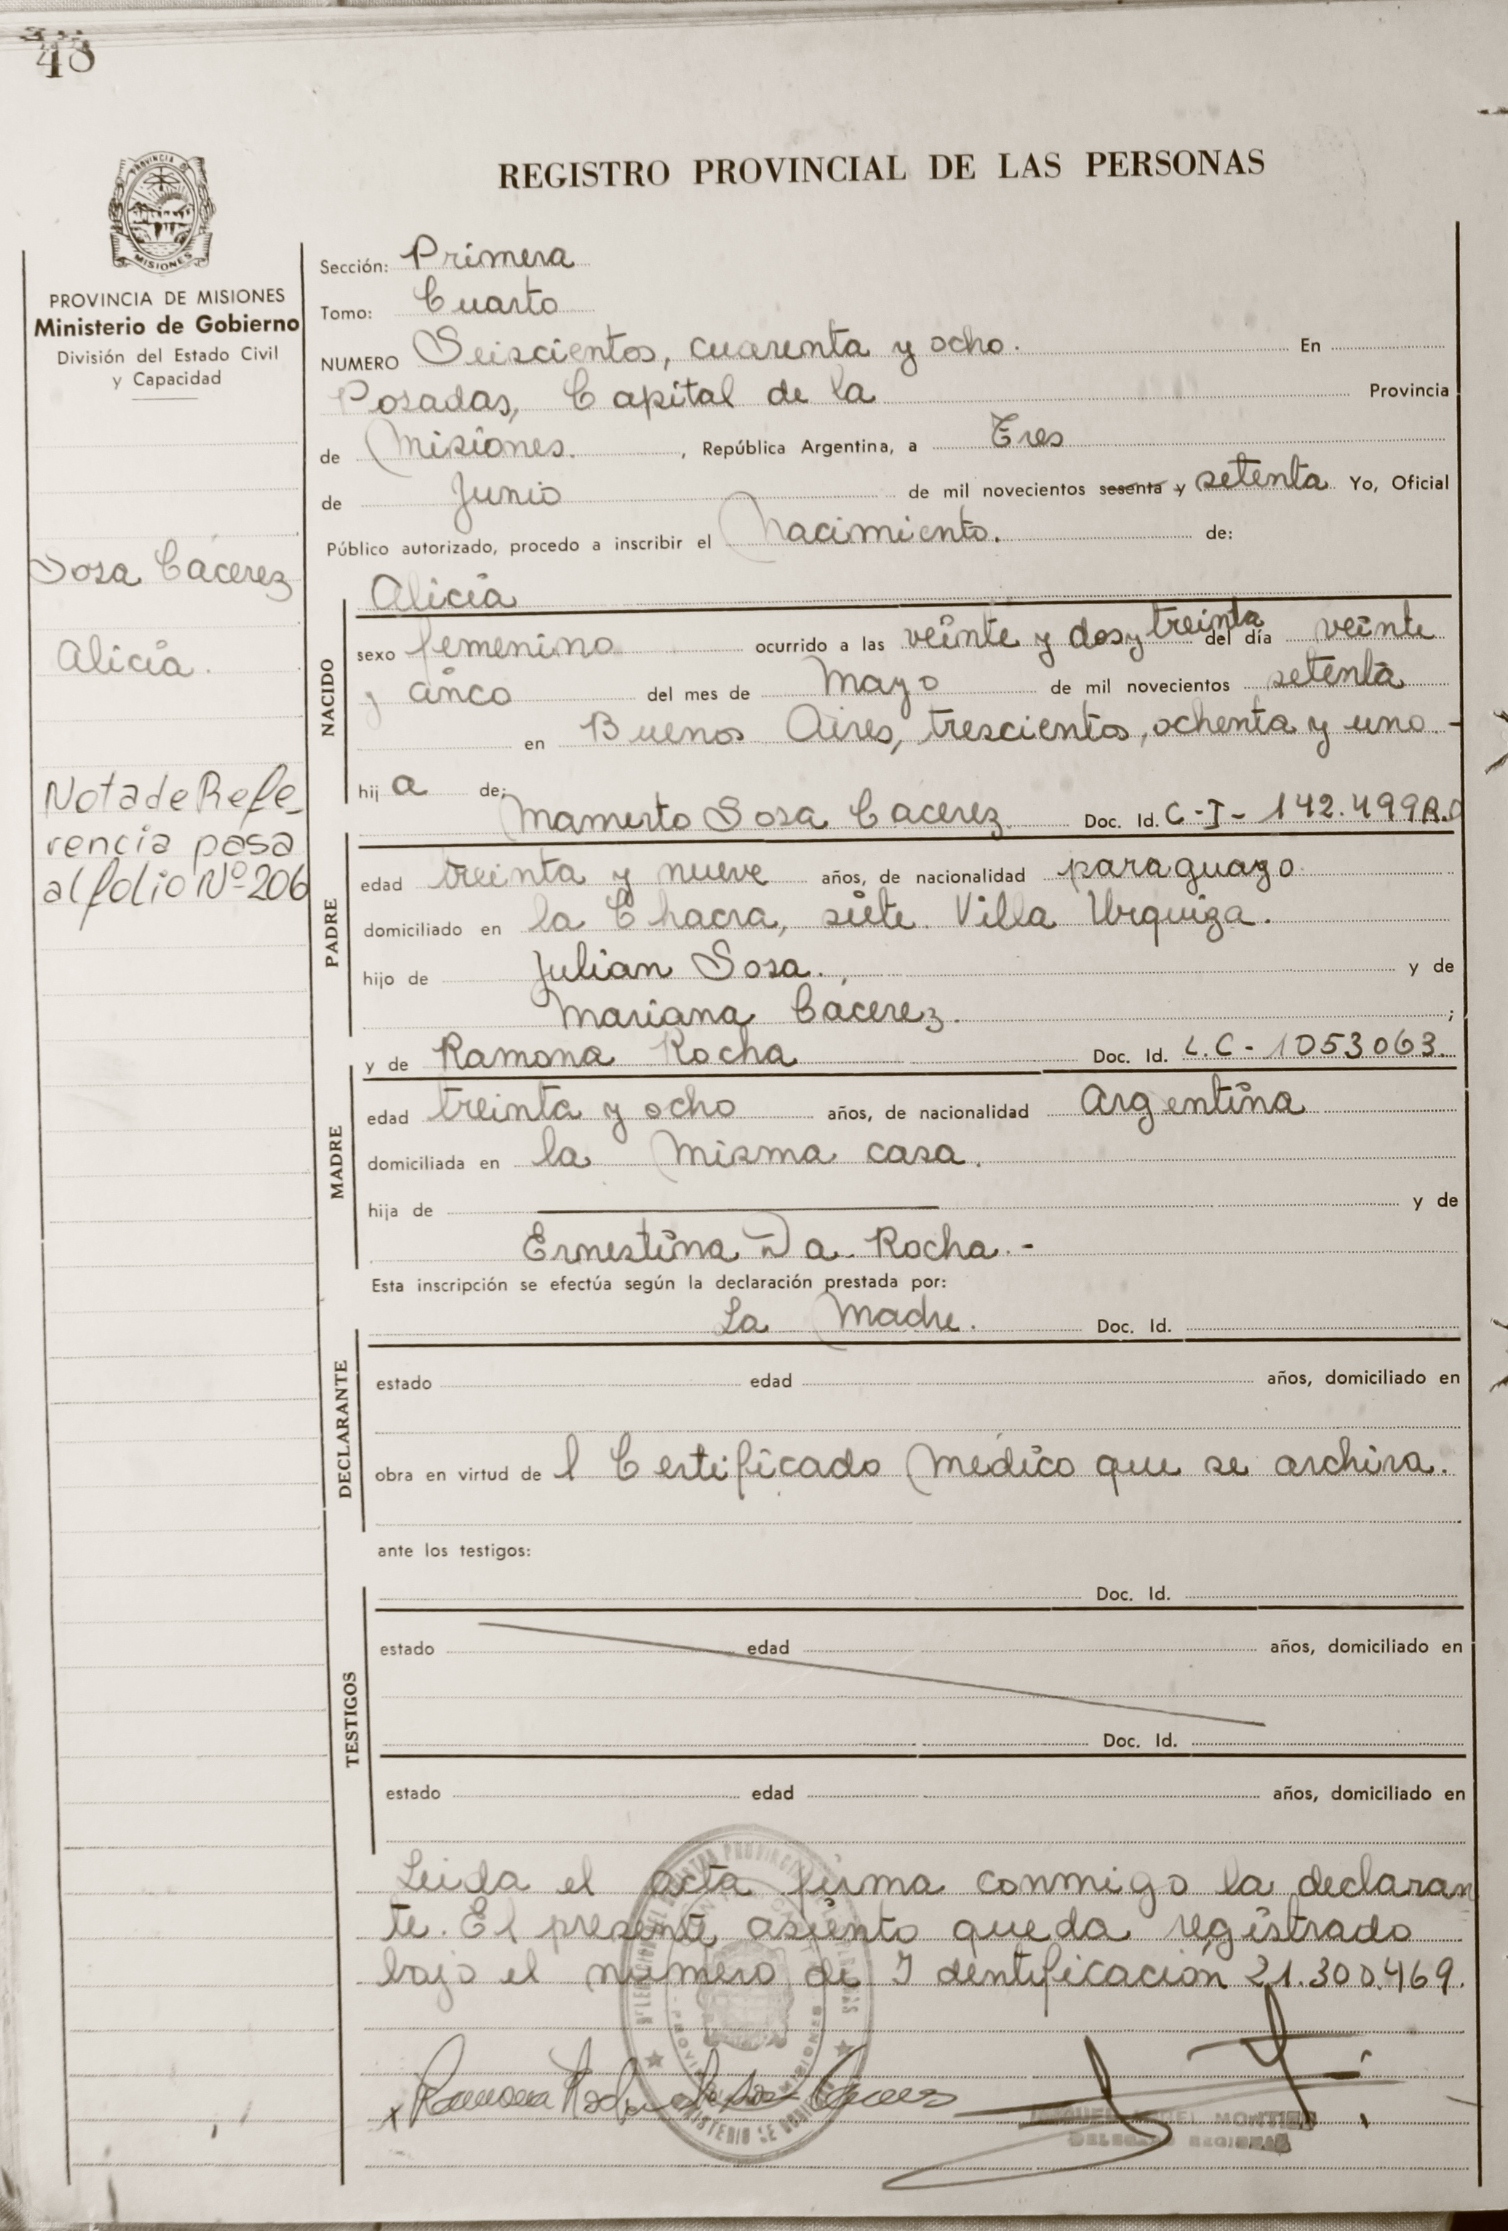 48
REGISTRO PROVINCIAL DE LAS PERSONAS
PROVINCIA DE MISIONES
Ministerio de Gobierno
División del Estado Civil
y Capacidad
Sosa Cácerez
Alicia.
Nota de Refe-
rencia pasa
al folio Nº 206
Sección: Primera
Tomo: Cuarto
NUMERO Seiscientos, cuarenta y ocho. En
Posadas, Capital de la Provincia
de Misiones. , República Argentina, a Tres
de Junio de mil novecientos sesenta y setenta Yo, Oficial
Público autorizado, procedo a inscribir el Nacimiento. de:
Alicia
NACIDO
sexo femenino ocurrido a las veinte y dos y treinta del día veinte
y cinco del mes de Mayo de mil novecientos setenta
en Buenos Aires, trescientos, ochenta y uno.-
hij a de:
Mamerto Sosa Cacerez Doc. Id. C-I- 142.499
PADRE
edad treinta y nueve años, de nacionalidad paraguayo.
domiciliado en la Chacra, siete. Villa Urquiza.
hijo de Julian Sosa. y de
Mariana Cácerez. ;
y de Ramona Rocha Doc. Id. L.C- 1053063.
MADRE
edad treinta y ocho años, de nacionalidad Argentina
domiciliada en la misma casa.
hija de y de
Ernestina Da Rocha.-
Esta inscripción se efectúa según la declaración prestada por:
La Madre. Doc. Id.
DECLARANTE
estado edad años, domiciliado en
obra en virtud de l Certificado Médico que se archiva.
ante los testigos:
Doc. Id.
TESTIGOS
estado edad años, domiciliado en
Doc. Id.
estado edad años, domiciliado en
Leida el acta firma conmigo la declaran
te. El presente asiento queda registrado
bajo el número de Identificación 21.300.469.
DEL
DELEGADO REGIONAL